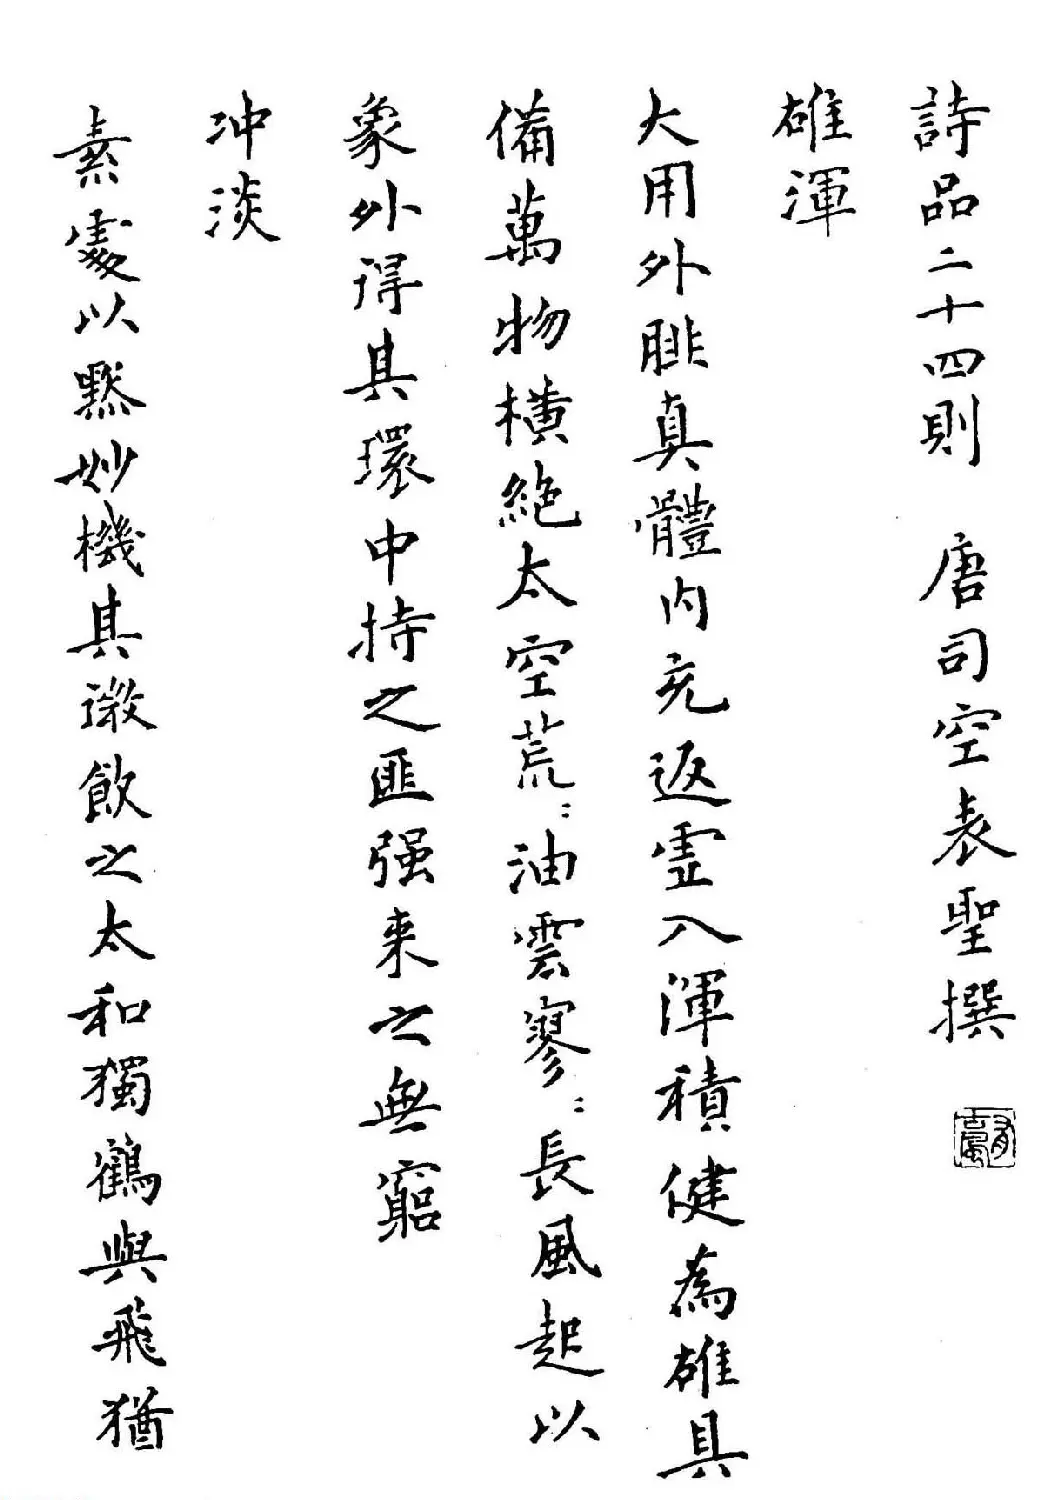 詩品二十四則 唐司空表聖撰
雄渾
大用外腓真體内充返虛入渾積健為雄具
備萬物橫絶太空荒:油雲寥:長風起以
象外得其環中持之匪强来之無窮
冲淡
素處以默妙機其微飲之太和獨鶴與飛猶